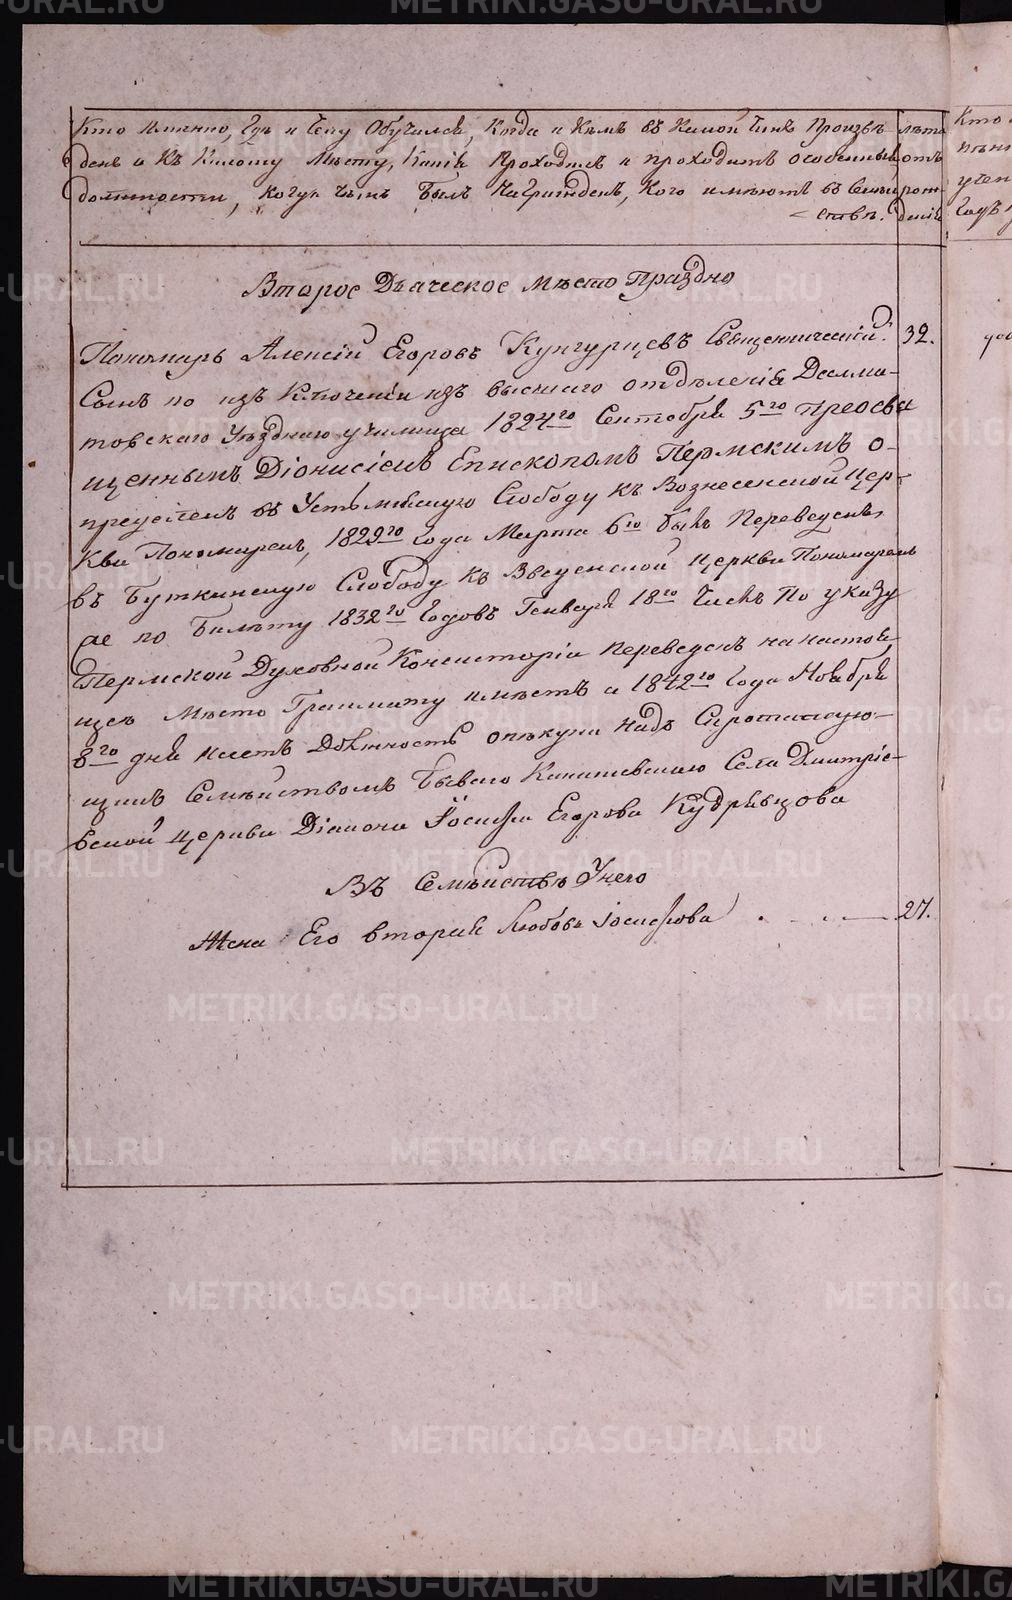 Кто именно, Гдѣ и Чему Обучался, Когда и Кѣмъ въ Какой Чинъ Произве-
денъ и Къ Какому Мѣсту, Какія Проходилъ и проходитъ особенныя
должности, когда Чѣмъ былъ Награжденъ, Кого имѣютъ въ Семей-
ствѣ.
лѣта
отъ
рож-
денія
Второе Дьяческое Мѣсто Праздно
Пономарь Алексій Егоровъ Кунгурцевъ Священническій 32.
Сынъ по изъ Ключеніи изъ высшаго отдѣленія Далма-
товскаго Уѣзднаго училища 1824го Сентября 5го Преосвя
щеннымъ Діонисіемъ Епископомъ Пермскимъ о-
предѣленъ въ Слободу къ Вознесенской Цер-
кви Пономаремъ, 1829го года Марта 6го былъ Переведенъ
въ Буткинскую Слободу къ Введенской Церкви Пономаремъ
же по Билету 1832го Годовъ Генваря 18го Числъ По указу
Пермской Духовной Консисторіи переведенъ на настоя
щее Мѣсто Грамматну имѣетъ а 1842го Года Ноября
8го дня несетъ Должность опѣкуна надъ Сиротствую-
щимъ Семѣйствомъ бывшаго Села Дмитріе-
вской церкви Діакона Іосифа Егорова Кудрявцова
Въ Семѣйствѣ Унего
Жена Его вторая Любовь Іосифова 27.
Кто
METRIKI.GASO-URAL.RU